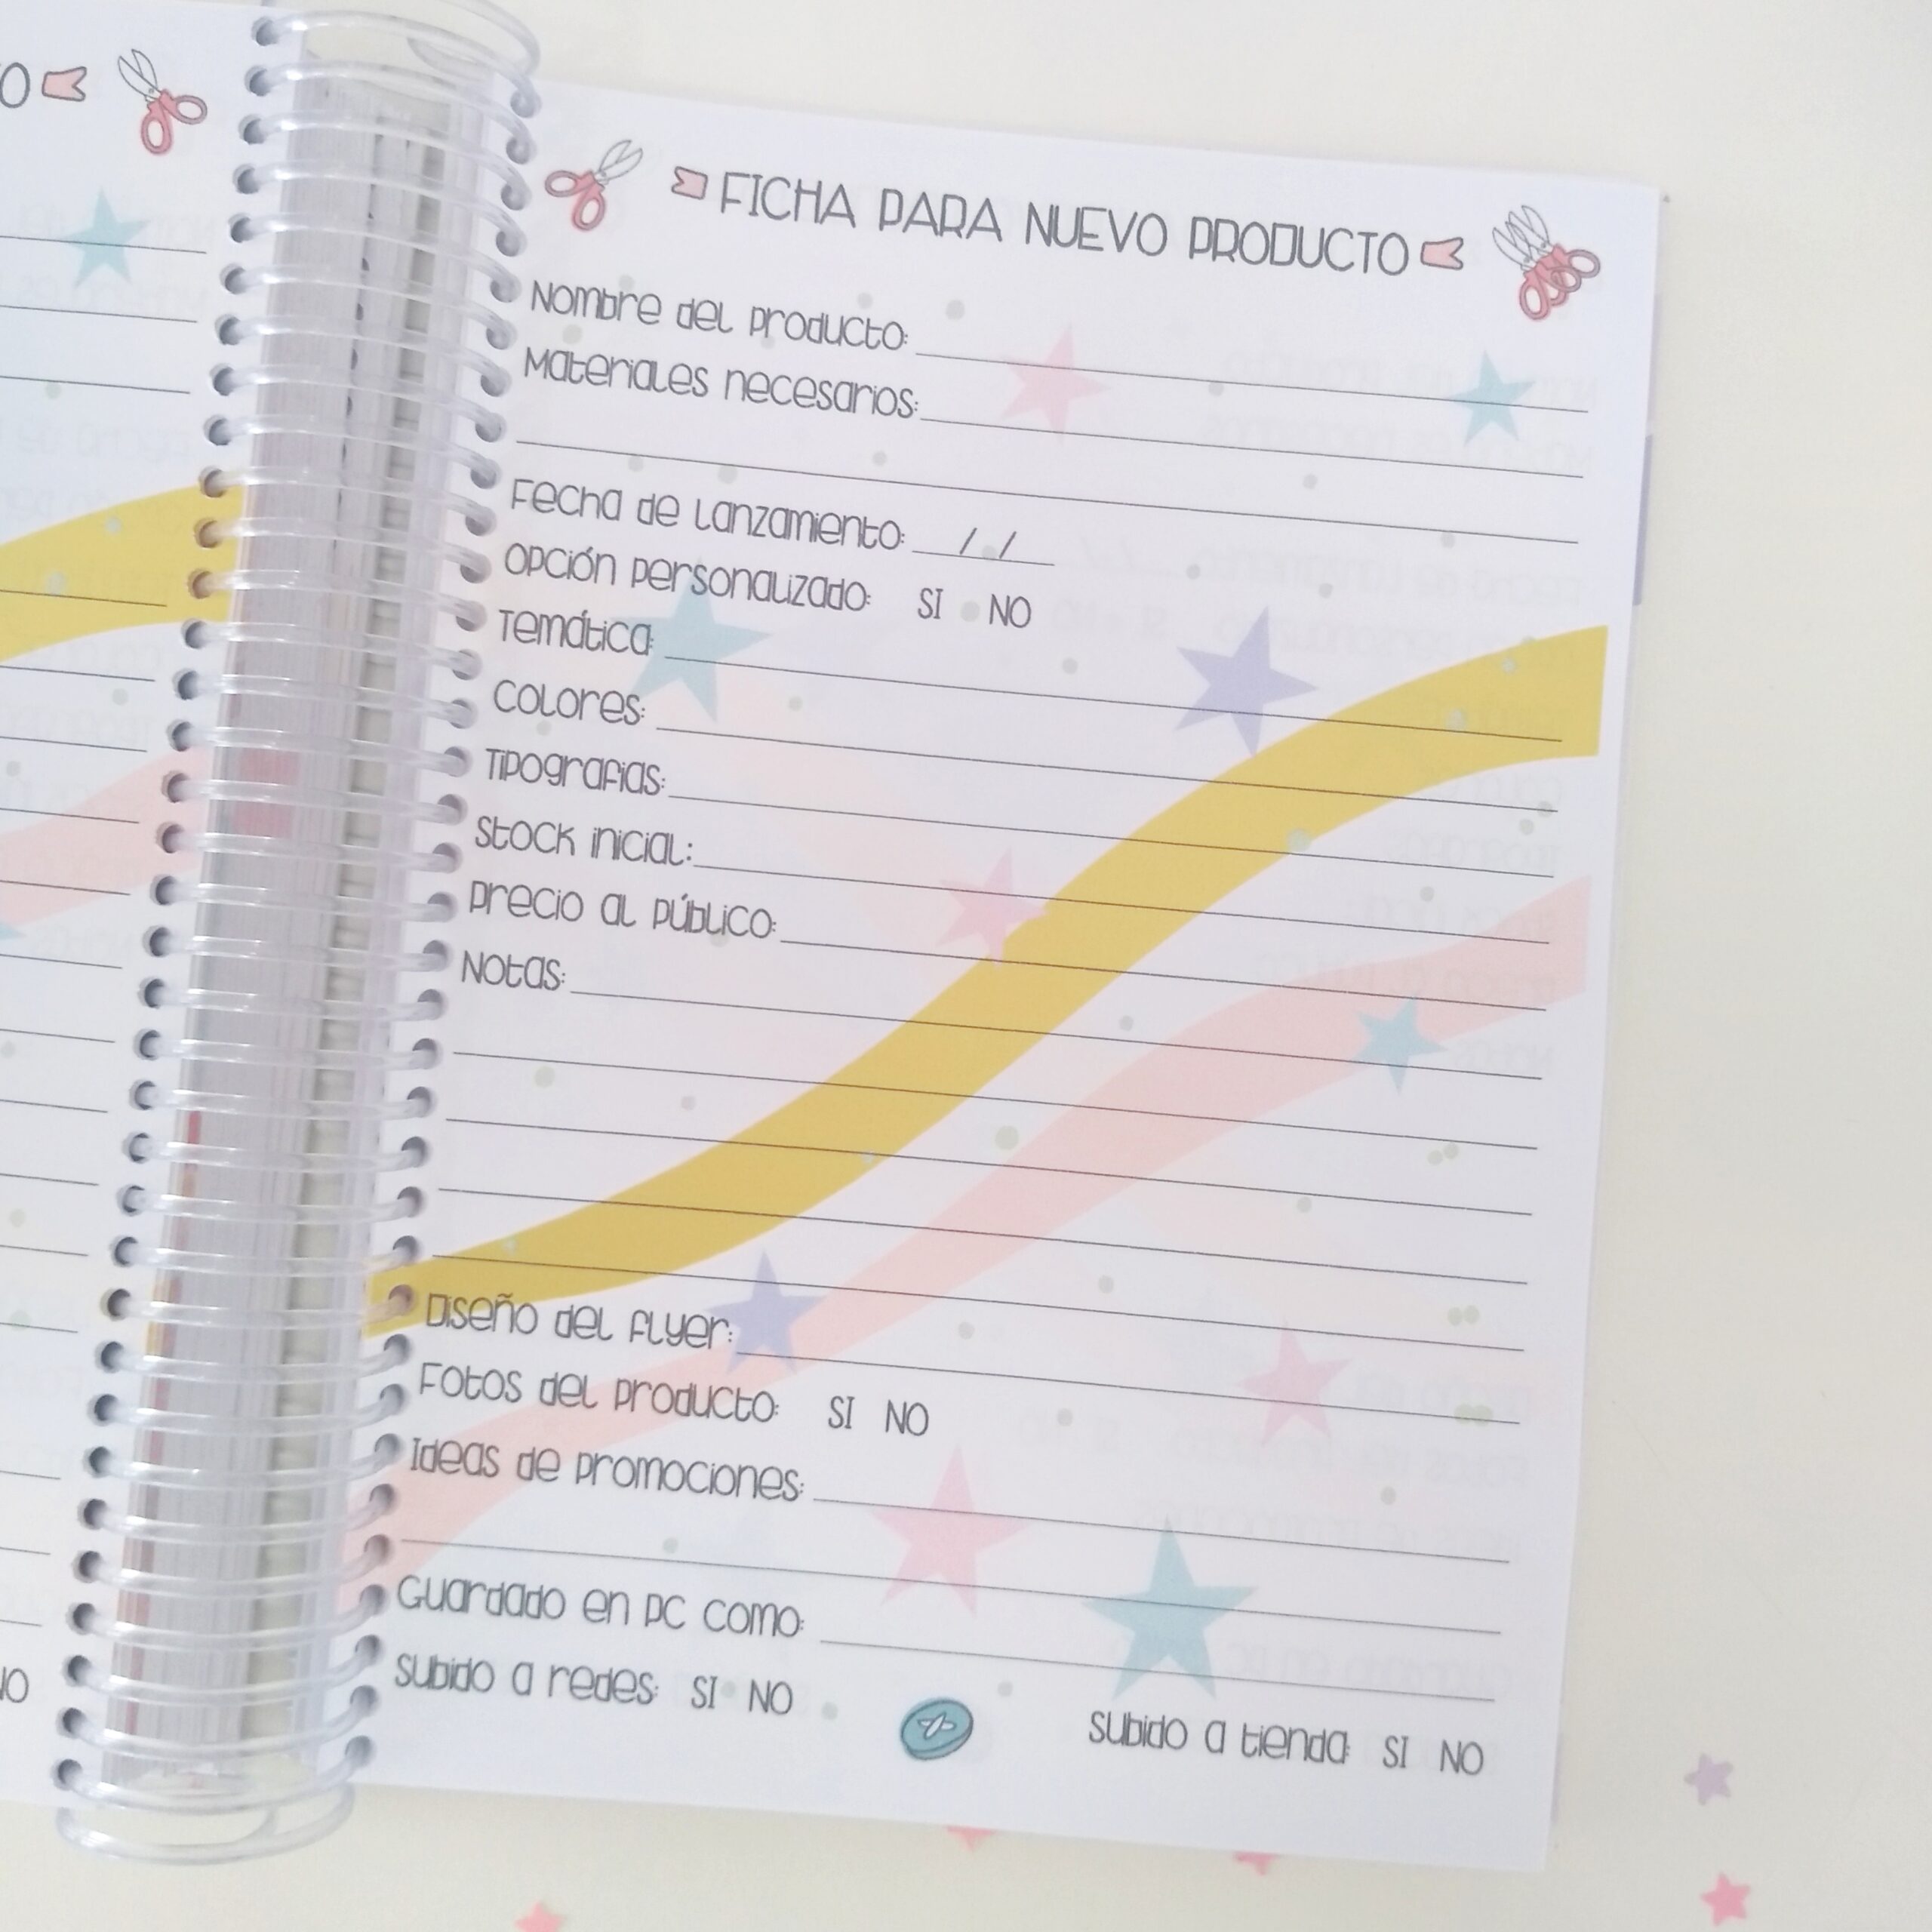 O
FICHA PARA NUEVO PRODUCTO
Nombre del producto:
Materiales necesarios:
Fecha de lanzamiento: / /
Opción personalizado: SI NO
Temática:
Colores:
Tipografias:
Stock inicial:
Precio al público:
Notas:
Diseño del flyer:
Fotos del producto: SI NO
Ideas de promociones:
Guardado en PC como:
Subido a redes: SI NO
Subido a tienda: SI NO